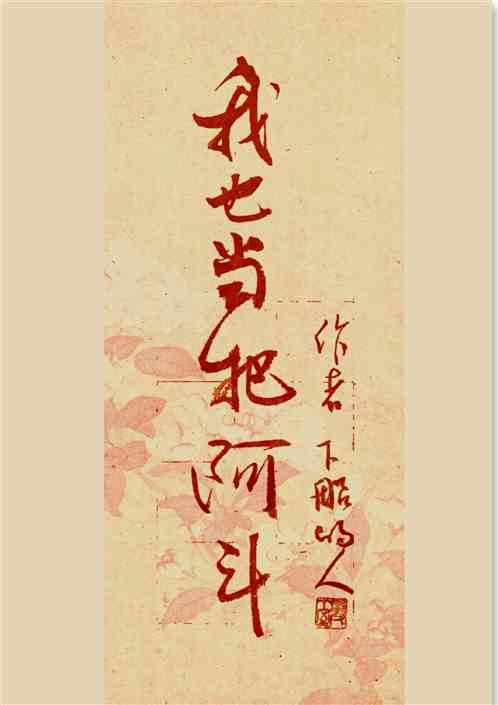 我也当把阿斗
作者 下船的人